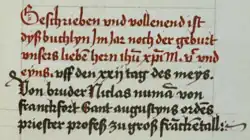 Geschrieben vnd vollenend ist
dys buchlyn Im Jar noch der geburt
vnsers lieben hern ihu xpi M. vc vnd
eyns. vff den xxij tag des meys.
Von bruder Niclas numan von
franckfort Sant augustyns ordens
priester profess zu groß franckentall: